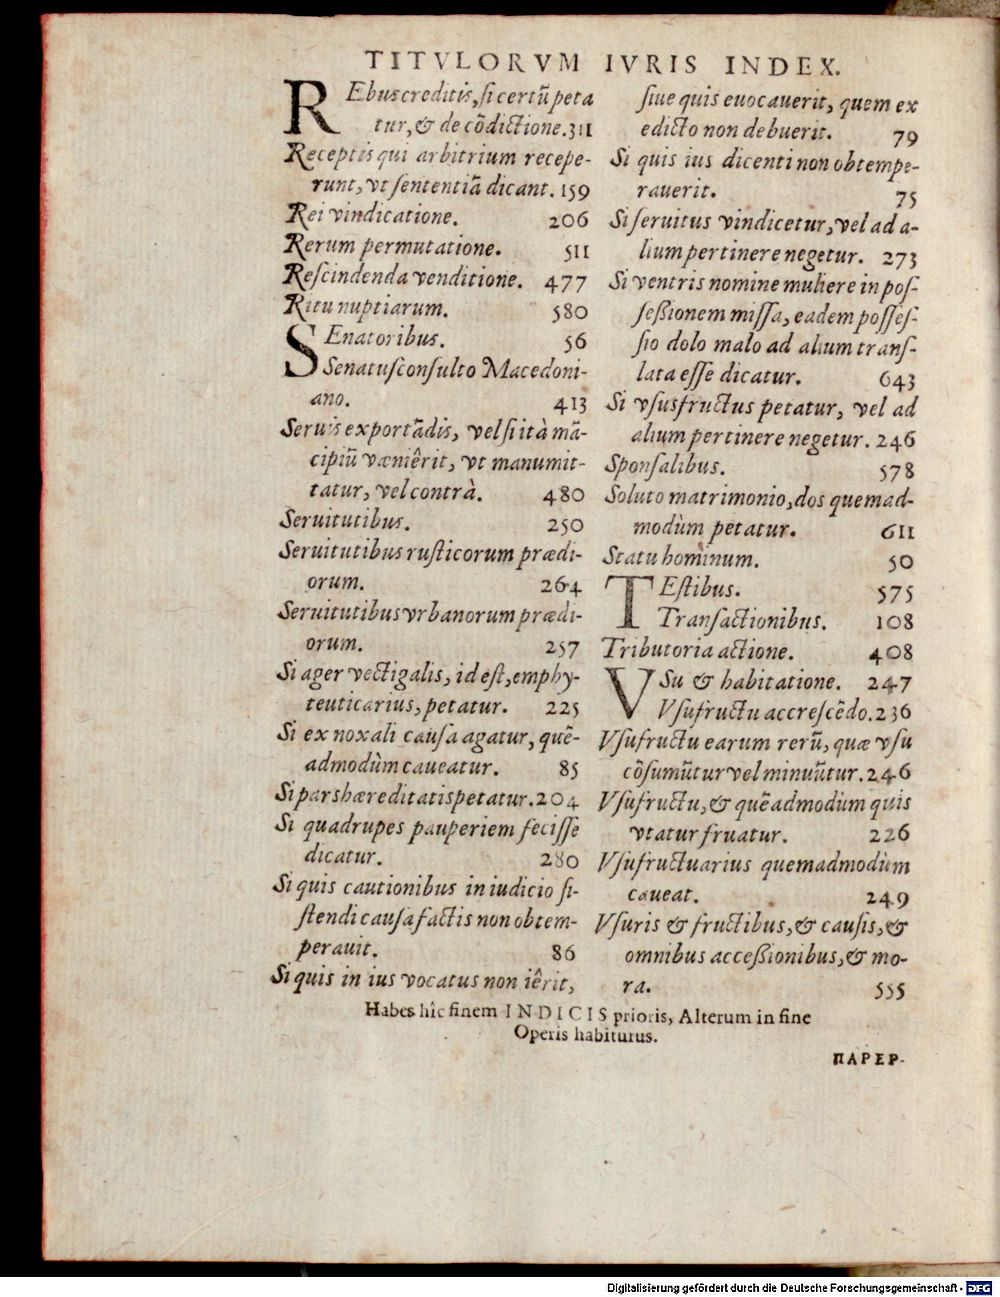 TITVLORVM IVRIS INDEX.
REbus creditis, si certũ peta
tur, & de cõdictione. 311
Receptis qui arbitrium recepe-
runt, vt sententiã dicant. 159
Rei vindicatione. 206
Rerum permutatione. 511
Rescindenda venditione. 477
Ritu nuptiarum. 580
SEnatoribus. 56
Senatusconsulto Macedoni-
ano. 413
Seruis exportãdis, vel si ità mã-
cipiũ væniêrit, vt manumit-
tatur, vel contrà. 480
Seruitutibus. 250
Seruitutibus rusticorum prædi-
orum. 264
Seruitutibus vrbanorum prædi-
orum. 257
Si ager vectigalis, id est, emphy-
teuticarius, petatur. 225
Si ex noxali causa agatur, quẽ-
admodùm caueatur. 85
Si pars hæreditatis petatur. 204
Si quadrupes pauperiem fecisse
dicatur. 280
Si quis cautionibus in iudicio si-
stendi causa factis non obtem-
perauit. 86
Si quis in ius vocatus non iêrit,
siue quis euocauerit, quem ex
edicto non debuerit. 79
Si quis ius dicenti non obtempe-
rauerit. 75
Si seruitus vindicetur, vel ad a-
lium pertinere negetur. 273
Si ventris nomine muliere in pos-
seßionem missa, eadem posses-
sio dolo malo ad alium trans-
lata esse dicatur. 643
Si vsusfructus petatur, vel ad
alium pertinere negetur. 246
Sponsalibus. 578
Soluto matrimonio, dos quemad-
modùm petatur. 611
Statu hominum. 50
TEstibus. 575
Transactionibus. 108
Tributoria actione. 408
VSu & habitatione. 247
Vsufructu accrescẽdo. 236
Vsufructu earum rerũ, quæ vsu
cõsumũtur vel minuũtur. 246
Vsufructu, & quẽadmodùm quis
vtatur fruatur. 226
Vsufructuarius quemadmodùm
caueat. 249
Vsuris & fructibus, & causis, &
omnibus acceßionibus, & mo-
ra. 555
Habes hîc finem INDICIS prioris, Alterum in fine
Operis habiturus.
ΠΑΡΕΡ-
Digitalisierung gefördert durch die Deutsche Forschungsgemeinschaft - DFG